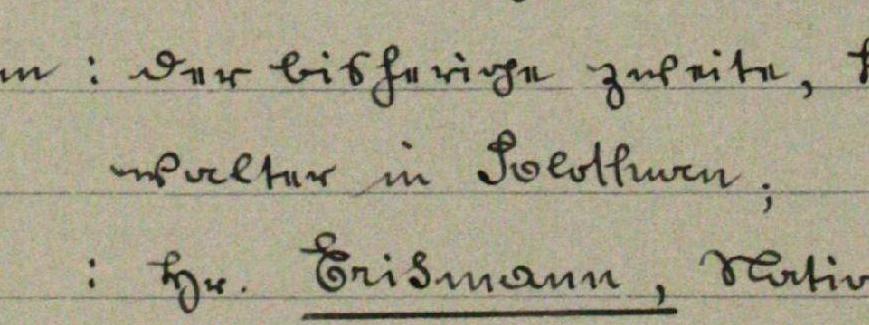 : der bisherige zweite,
walter in Solothurn;
: Hr. Erismann, Natio